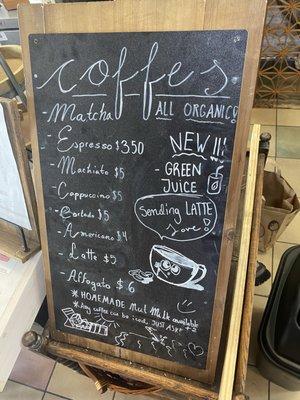 coffees
- Matcha
ALL ORGANIC!
- Espresso $3.50
NEW!!!
- Machiato $5
- GREEN JUICE
- Cappuccino $5
- Cortado $5
Sending LATTE Love!
- Americano $4
- Latte $5
- Affogato $6
* HOMEMADE Nut Milk available
* Any coffee can be iced, JUST ASK!